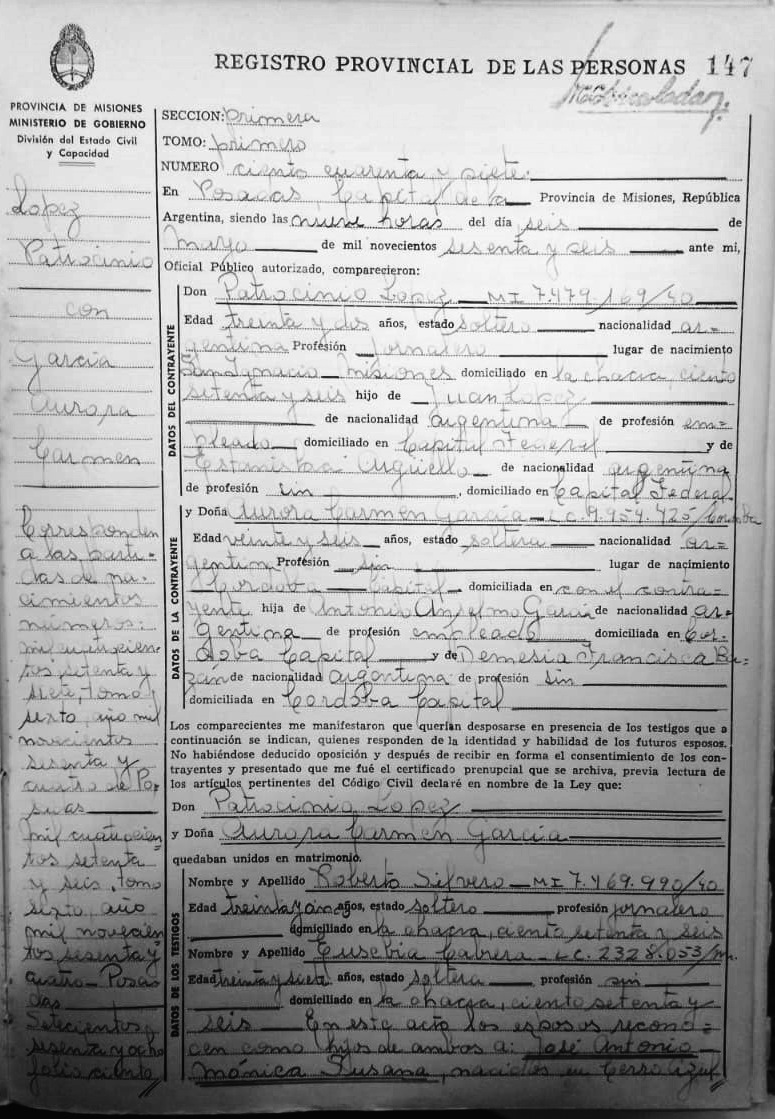 REGISTRO PROVINCIAL DE LAS PERSONAS 147
PROVINCIA DE MISIONES
MINISTERIO DE GOBIERNO
División del Estado Civil
y Capacidad
Lopez
Patrocinio
con
Garcia
Aurora
Carmen
Corresponden
a las parti-
das de na-
cimientos
números:
mil cuatrocien-
tos setenta y
siete, tomo
sexto, año mil
novecientos
sesenta y
cuatro de Po-
sadas
mil cuatrocien=
tos setenta
y seis, tomo
sexto, año
mil novecien
tos sesenta y
cuatro - Posa
das
Setecientos
sesenta y ocho
folio ciento
SECCION: primera
TOMO: primero
NUMERO ciento cuarenta y siete.
En Posadas, Capital de la Provincia de Misiones, República
Argentina, siendo las nueve horas del día seis de
Mayo de mil novecientos sesenta y seis ante mi,
Oficial Público autorizado, comparecieron:
DATOS DEL CONTRAYENTE
Don Patrocinio Lopez - MI 7.479.169/40
Edad treinta y dos años, estado soltero nacionalidad ar=
gentina Profesión jornalero lugar de nacimiento
San Ignacio - Misiones domiciliado en la chacra, ciento
setenta y seis hijo de Juan Lopez
de nacionalidad argentina de profesión em=
pleado domiciliado en Capital Federal y de
Argüello de nacionalidad argentina
de profesión sin, domiciliado en Capital Federal
DATOS DE LA CONTRAYENTE
y Doña Aurora Carmen García - L.C. 4.954.425/Cordoba
Edad veinte y seis años, estado soltera nacionalidad ar=
gentina Profesión sin lugar de nacimiento
Cordoba - Capital domiciliada en con el contra=
yente hija de Antonio Anselmo Garcia de nacionalidad ar=
gentina de profesión empleado domiciliada en Cor-
doba Capital y de Demesia Francisca Ba-
zán de nacionalidad argentina de profesión sin
domiciliada en Cordoba Capital
Los comparecientes me manifestaron que querían desposarse en presencia de los testigos que a
continuación se indican, quienes responden de la identidad y habilidad de los futuros esposos.
No habiéndose deducido oposición y después de recibir en forma el consentimiento de los con-
trayentes y presentado que me fué el certificado prenupcial que se archiva, previa lectura de
los artículos pertinentes del Código Civil declaré en nombre de la Ley que:
Don Patrocinio Lopez
y Doña Aurora Carmen García
quedaban unidos en matrimonio.
DATOS DE LOS TESTIGOS
Nombre y Apellido Roberto Silvero - MI 7.469.990/40
Edad treinta y años, estado soltero profesión jornalero
domiciliado en la chacra, ciento setenta y seis
Nombre y Apellido Eusebia Cabrera - L.C. 2328.053/m.
Edad treinta y siete años, estado soltera profesión sin
domiciliado en la chacra, ciento setenta y
seis - En este acto los esposos recono=
cen como hijos de ambos a: José Antonio -
Mónica Susana, nacidos en Cerro Azul